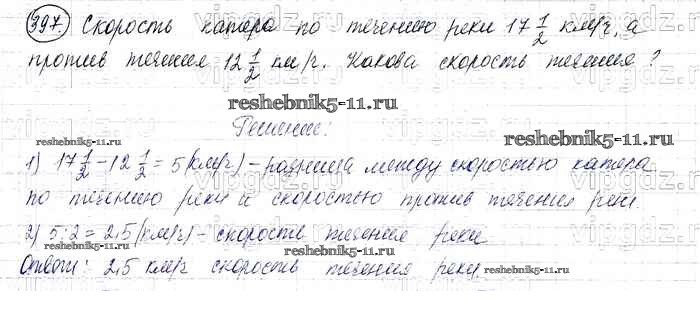 397. Скорость катера по течению реки 17 1/2 км/ч, а
против течения 12 1/2 км/ч. Какова скорость течения?
reshebnik5-11.ru
Решение:
reshebnik5-11.ru
1) 17 1/2 - 12 1/2 = 5 (км/ч) - разница между скоростью катера
по течению реки и скоростью против течения реки
2) 5:2 = 2,5 (км/ч) - скорость течения реки
reshebnik5-11.ru
Ответ: 2,5 км/ч скорость течения реки.
reshebnik5-11.ru
vipgdz.ru